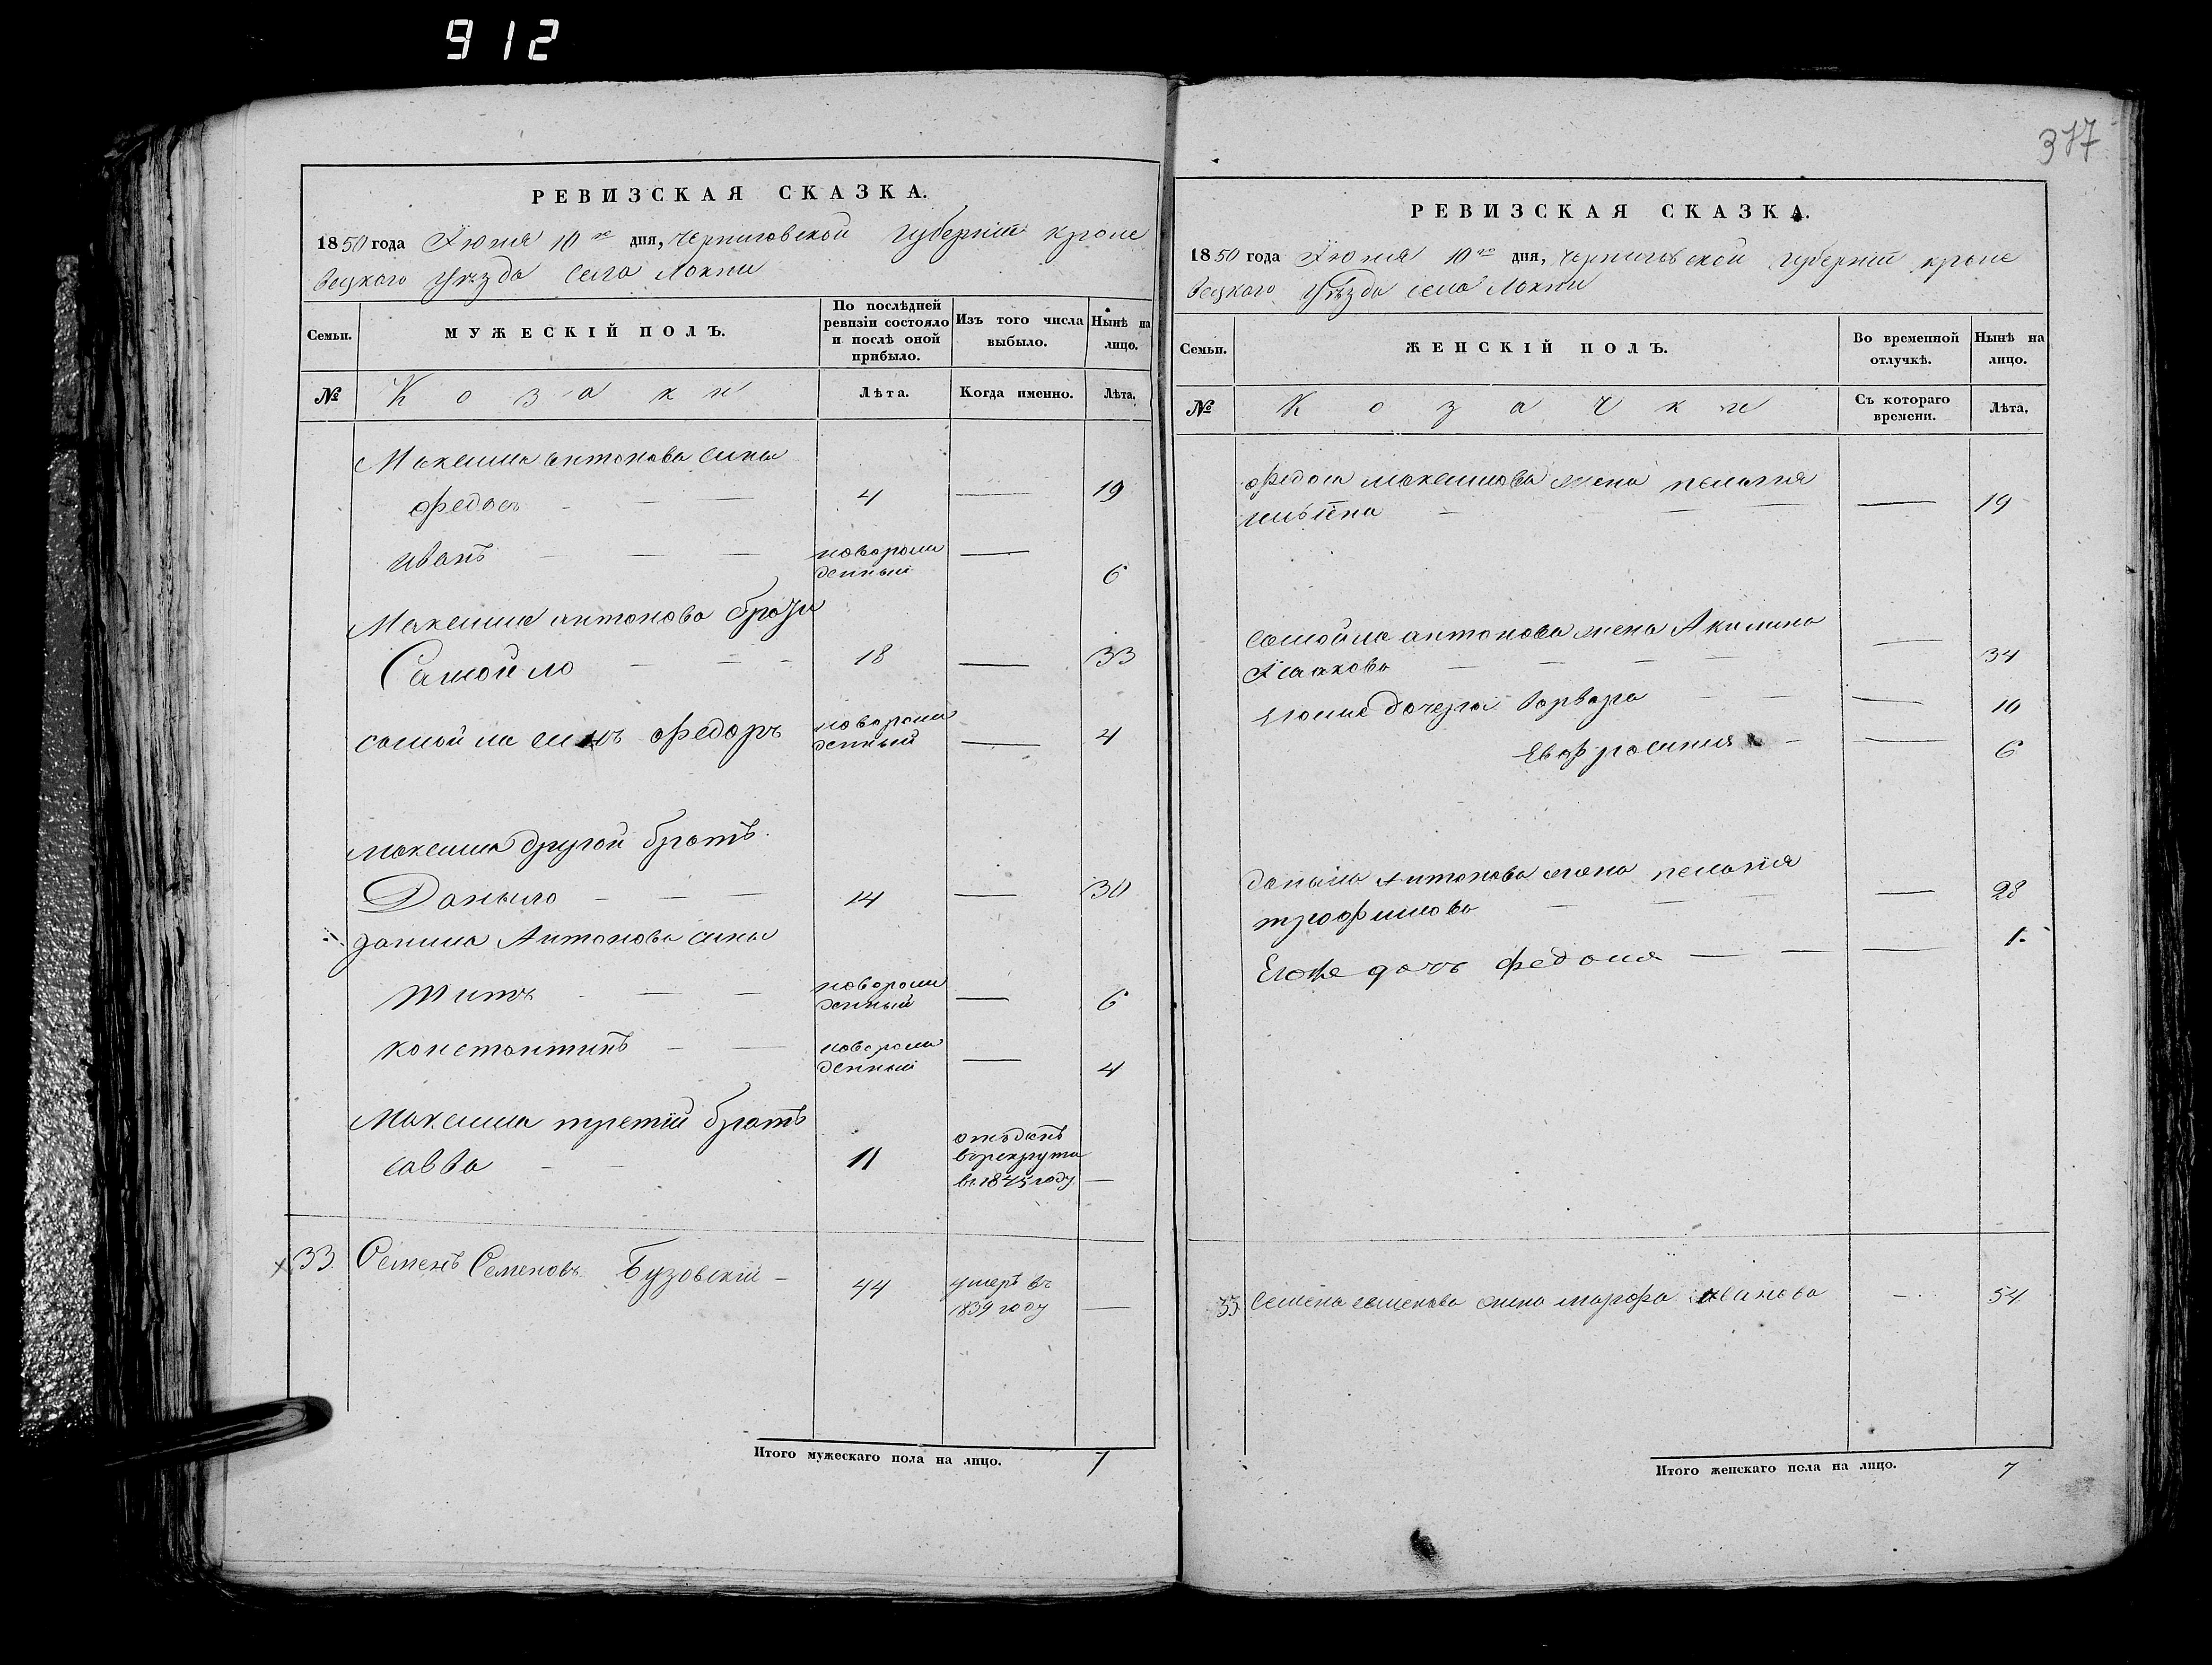 912
РЕВИЗСКАЯ СКАЗКА.
1850 года Іюня 10го дня, Черниговской губерніи кроле
вецкого уѣзда села Локни
Семьи.
МУЖЕСКІЙ ПОЛЪ.
По послѣдней ревизіи состояло и послѣ оной прибыло.
Изъ того числа выбыло.
Нынѣ на лицо.
№
Козаки
Лѣта.
Когда именно.
Лѣта.
Максима антонова сины
федосъ 4 — 19
иванъ новорожденный — 6
Максима антонова братъ
Самойло 18 — 33
самойла синъ федоръ новорожденный — 4
максима другой братъ
Данило 14 — 30
данила Антонова сины
титъ новорожденный — 6
константинъ новорожденный — 4
Максима третій братъ
савва 11 отъданъ в рекруты в 1845 году —
33. Семенъ Семеновъ Бузовскій 44 умеръ въ 1839 году —
Итого мужескаго пола на лицо. 7
377
РЕВИЗСКАЯ СКАЗКА.
1850 года Іюня 10го дня, черниговской губерніи кроле
вецкого уѣзда села Локни
Семьи.
ЖЕНСКІЙ ПОЛЪ.
Во временной отлучкѣ.
Нынѣ на лицо.
№
Козачки
Съ котораго времени.
Лѣта.
федоса максимова жена пелагия
— 19
самойла антонова жена Акилина
Исаакова — 34
Егоже дочери варвара — 10
Евфросиния — 6
данила Антонова жена пелагія
трофимова — 28
Егоже дочъ федосия — 1.
33 Семена семенова жена марфа иванова — 54
Итого женскаго пола на лицо. 7